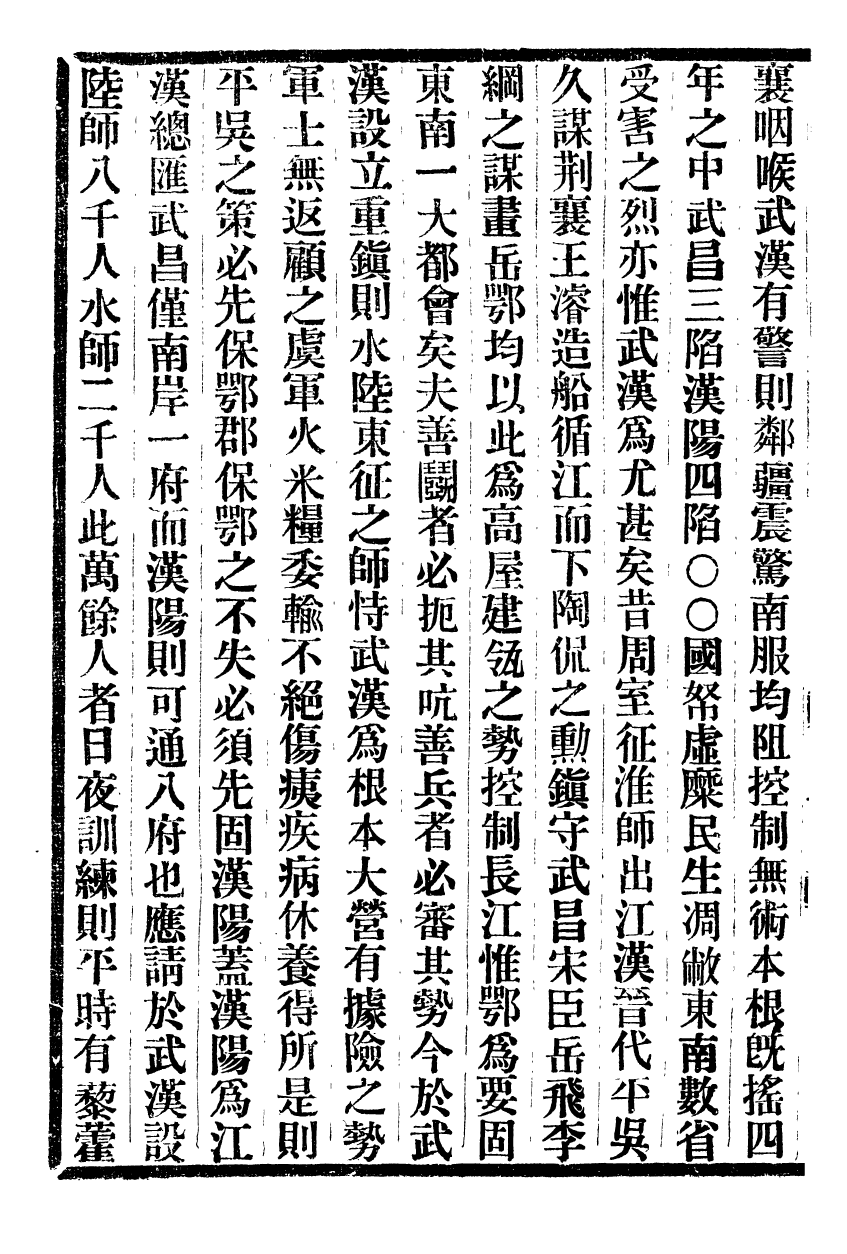 襄咽喉武漢有警則鄰疆震驚南服均阻控制無術本根旣搖四
年之中武昌三陷漢陽四陷〇〇國帑虛糜民生凋敝東南數省
受害之烈亦惟武漢爲尤甚矣昔周室征淮師出江漢晉代平吳
久謀荆襄王濬造船循江而下陶侃之勳鎭守武昌宋臣岳飛李
綱之謀畫岳鄂均以此爲高屋建瓴之勢控制長江惟鄂爲要固
東南一大都會矣夫善鬭者必扼其吭善兵者必審其勢今於武
漢設立重鎭則水陸東征之師恃武漢爲根本大營有據險之勢
軍士無返顧之虞軍火米糧委輸不絕傷痍疾病休養得所是則
平吳之策必先保鄂郡保鄂之不失必須先固漢陽蓋漢陽爲江
漢總匯武昌僅南岸一府而漢陽則可通八府也應請於武漢設
陸師八千人水師二千人此萬餘人者日夜訓練則平時有藜藿